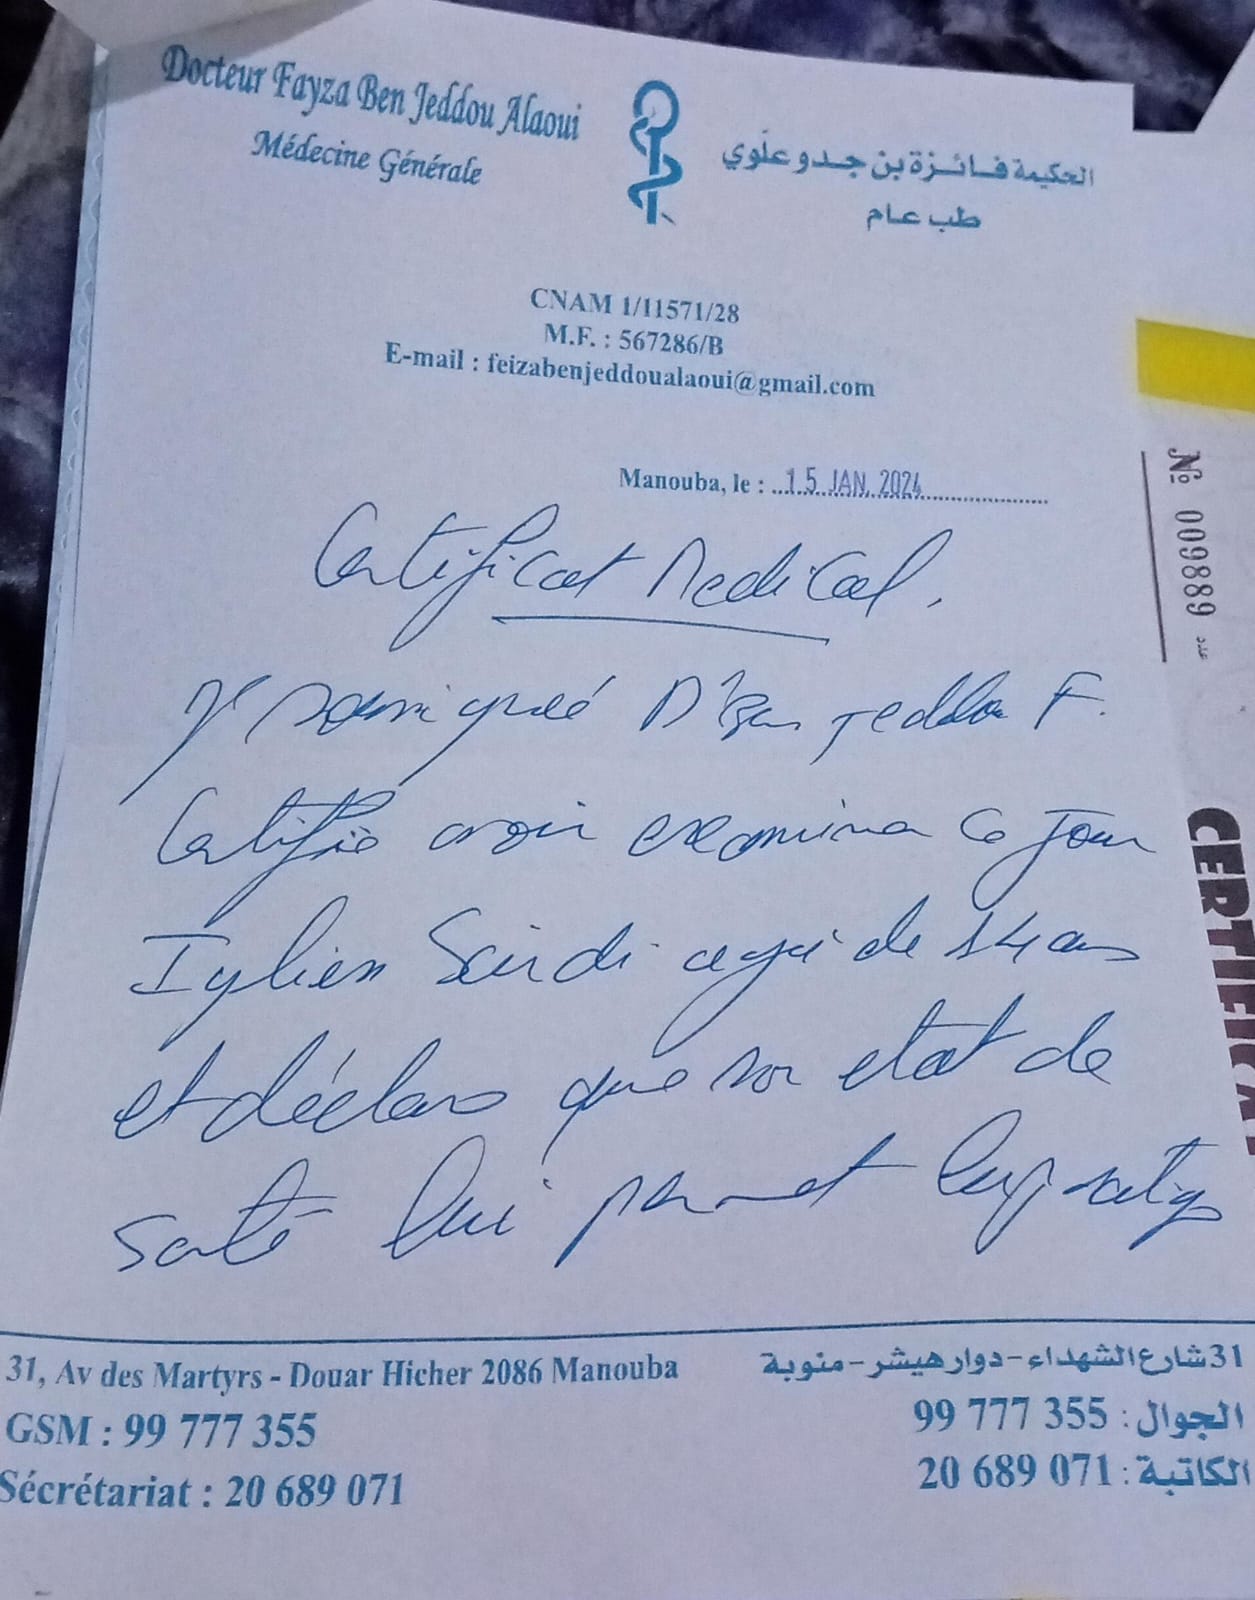 Docteur Fayza Ben Jeddou Alaoui
Médecine Générale
الحكيمة فائزة بن جدو علوي
طب عام
CNAM 1/11571/28
M.F. : 567286/B
E-mail : feizabenjeddoualaoui@gmail.com
Manouba, le : 15 JAN. 2024
Certificat Medical.
Je soussigneé Dr Ben Jeddou F.
Certifie avoir examiner ce jour
Saidi agé de 14 ans
et déclare que son etat de
santé lui permet
31, Av des Martyrs - Douar Hicher 2086 Manouba
GSM : 99 777 355
Sécrétariat : 20 689 071
31 شارع الشهداء - دوار هيشر - منوبة
الجوال : 99 777 355
الكاتبة : 20 689 071
№ 009889